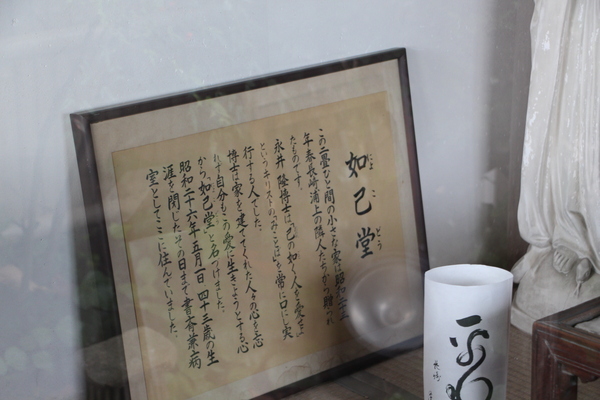 如己堂
にょ こ どう
この二畳ひと間の小さな家は昭和二十三
年春長崎浦上の隣人たちから贈られ
たものです。
永井隆博士は「己の如く人を愛せよ」
というキリストのみことばを常に口にし実
行する人でした。
博士は家を建ててくれた人々の心を忘
れず自分もこの愛に生きようとする心
から如己堂と名づけました。
昭和二十六年五月一日四十三歳の生
涯を閉じたその日まで書斎兼病
室としてここに住んでいました。
平和
長崎